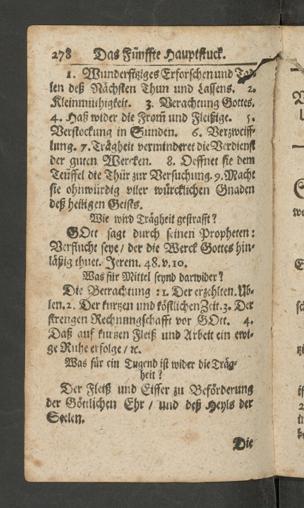 278 Das Fünffte Hauptstuck.
1. Wunderfiziges Erforschen und Tad-
len deß Nächsten Thun und Lassens. 2.
Kleinmühigkeit. 3. Verachtung Gottes.
4. Haß wider die From̃ und Fleißige. 5.
Verstockung in Sunden. 6. Verzweiff-
lung. 7. Trägheit vermindert die Verdienst
der guten Wercken. 8. Oeffnet sie dem
Teuffel die Thür zur Versuchung. 9. Macht
sie ohnwürdig viler würcklichen Gnaden
deß heiligen Geists.
Wie wird Trägheit gestrafft?
GOtt sagt durch seinen Propheten:
Verflucht seye / der die Werck Gottes hin-
läßig thuet. Jerem. 48. v. 10.
Was für Mittel seynd darwider?
Die Betrachtung: 1. Der erzehlten Ub-
len. 2. Der kurtzen und köstlichen Zeit. 3. Der
strengen Rechnungschafft vor GOtt. 4.
Daß auf kurtzen Fleiß und Arbeit ein ewi-
ge Ruhe erfolge / ꝛc.
Was für ein Tugend ist wider die Träg-
heit?
Der Fleiß und Eiffer zu Beförderung
der Göttlichen Ehr / und deß Heyls der
Seelen.
Die